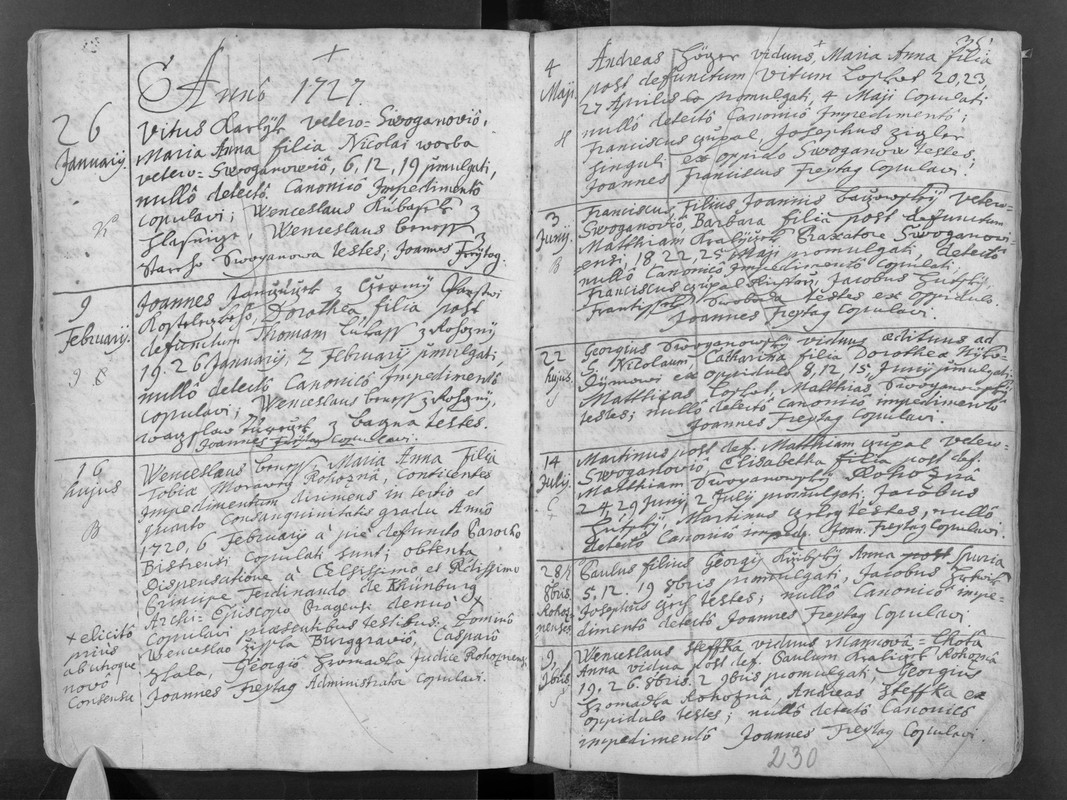 Anno 1727.
26
Januarij.
Vitus Karlyk vetero=Swoganoviô,
Maria Anna filia Nicolai worba
vetero=Swoganoviô, 6, 12, 19 pmulgati,
nullô detectô Canonicô Impedimentô
copulavi; Wenceslaus
Wenceslaus beness z
Starého Swoganowa testes; Joannes Freytag.
9
Februarij.
Joannes z
Dorothea filia post
defunctum Thomam z Rohozny
19. 26 January, 2 February pmulgati
nullô detectô Canonicô Impedimentô
copulavi; Wenceslaus beness z Rohozny,
z bagna testes.
Joannes Freytag Copulavi.
16
hujus
B
Wenceslaus beness, Maria Anna filia
Tobiæ Moravey Rohozna, Conticentes
Impedimentum dirimens in tertio et
quarto Consanguinitatis gradu Anno
1720, 6 February à piè defuncto Parocho
Bistrensi copulati sunt; obtenta
Dispensatione à Celsissimo et Rdissimo
Principe Ferdinando de Khünburg
Archi=Episcopo Pragensi denuò x
Copulavi præsentibus testibus: Dominô
Wenceslao Burggraviô, Casparô
Skala, Georgiô Hromadka Judice Rohoznensi
Joannes Freytag Administrator Copulavi.
x elicitô
prius
ab utroque
novô
Consensu
35
4
Maji.
Andreas Höger viduus, Maria Anna filia
post defunctum Vitum Lopkot 20, 23,
27 Aprilis promulgati, 4 Maji Copulati
nullô detectô Canonicô Impedimentô;
Franciscus cupal Josephus zigler
singuli ex oppido Swoganow testes;
Joannes Franciscus Freytag Copulavi.
3
Junij.
B
Franciscus filius Joannis vetero=
Swoganoviô, Barbara filia post defunctum
Matthiam Kralyček Braxatore Swoganovi=
ensi, 18, 22, 25 Maji promulgati, detectô
nullô Canonicô Impedimentô Copulati,
Franciscus cupal Jacobus
Swoboda testes ex oppidulo.
Joannes Freytag Copulavi.
22
hujus
Georgius Swoyanowsky viduus ædituus ad
S. Nicolaum, Catharina filia Dorothea
ex oppidulo 8, 12, 15, Juny pmulgati;
Matthias Lopkot, Matthias Swoyanowsky
testes; nullô detectô canonicô impedimentô
Joannes Freytag Copulavi.
14
July.
C
Martinus post def. Matthiam cupal vetero=
Swoganoviô, Elisabetha filia post def.
Matthiam Swoyanowsky Rohoznâ
24, 29 Juny, 2 July promulgati, Jacobus
Martinus testes, nullô
detectô Canonicô imped. Joan. Freytag Copulavi.
28
8bris.
Rohoz
nenses
Paulus filius Georgy Anna post spuria
5. 12. 19 8bris promulgati, Jacobus
Josephus testes; nullô Canonicô impe=
dimentô detectô Joannes Freytag Copulavi.
9
9bris
Wenceslaus Steffka viduus Mannovâ=Lhotâ
Anna vidua post def. Paulum Kralicek Rohoznâ
19. 26. 8bris. 2 9bris promulgati, Georgius
Hromadka Rohoznâ, Andreas Steffka ex
oppidulo testes; nullô detectô Canonicô
impedimentô Joannes Freytag Copulavi.
230